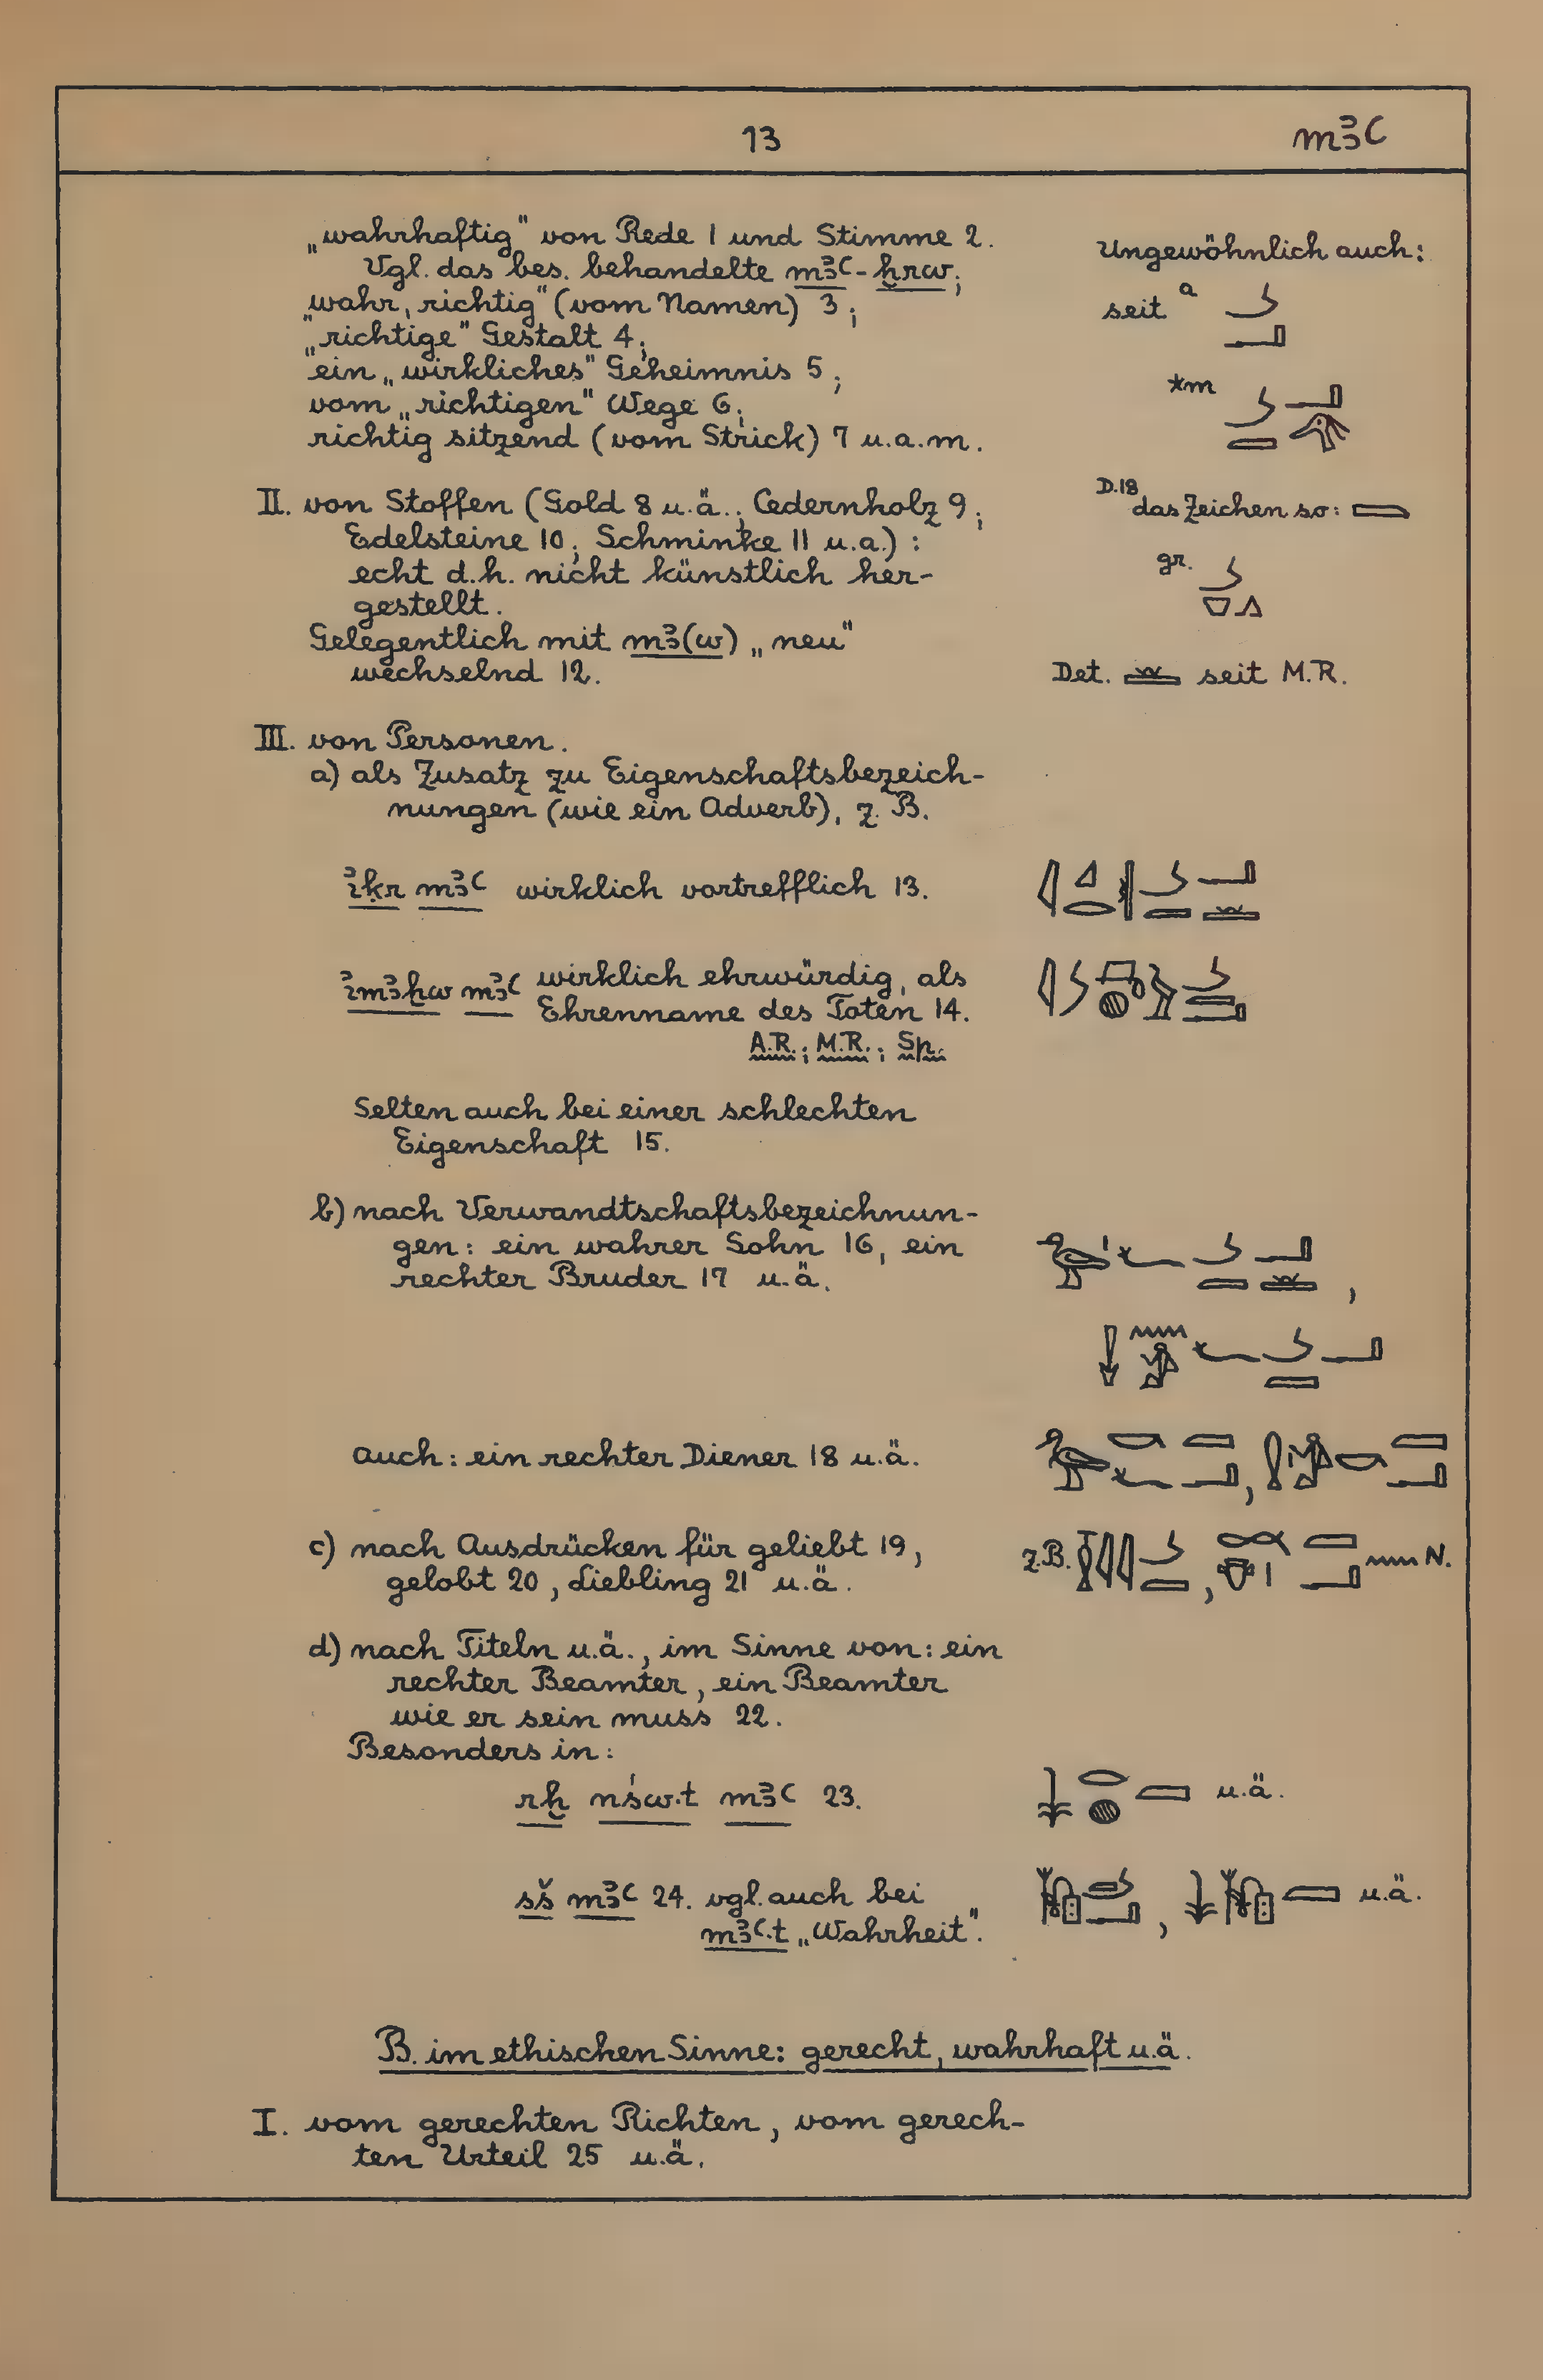 13
mꜣꜥ
„wahrhaftig" von Rede 1 und Stimme 2.
Vgl. das bes. behandelte mꜣꜥ-ḫrw;
„wahr, richtig" (vom Namen) 3;
„richtige" Gestalt 4;
ein „wirkliches" Geheimnis 5;
vom „richtigen" Wege 6;
richtig sitzend (vom Strick) 7 u.a.m.
Ungewöhnlich auch:
seit a
*m
II. von Stoffen (Gold 8 u.ä.; Cedernholz 9;
Edelsteine 10; Schminke 11 u.a.):
echt d.h. nicht künstlich her-
gestellt.
Gelegentlich mit mꜣ(w) „neu"
wechselnd 12.
D.18 das Zeichen so:
gr.
Det. seit M.R.
III. von Personen.
a) als Zusatz zu Eigenschaftsbezeich-
nungen (wie ein Adverb), z.B.
ꞽḳr mꜣꜥ wirklich vortrefflich 13.
ꞽmꜣḫw mꜣꜥ wirklich ehrwürdig, als
Ehrenname des Toten 14.
A.R.; M.R.; Sp.
Selten auch bei einer schlechten
Eigenschaft 15.
b) nach Verwandtschaftsbezeichnun-
gen: ein wahrer Sohn 16, ein
rechter Bruder 17 u.ä.
auch: ein rechter Diener 18 u.ä.
c) nach Ausdrücken für geliebt 19,
gelobt 20, Liebling 21 u.ä.
z.B. N.
d) nach Titeln u.ä., im Sinne von: ein
rechter Beamter, ein Beamter
wie er sein muss 22.
Besonders in:
rḫ nśw.t mꜣꜥ 23. u.ä.
sš mꜣꜥ 24. vgl. auch bei u.ä.
mꜣꜥ.t „Wahrheit".
B. im ethischen Sinne: gerecht, wahrhaft u.ä.
I. vom gerechten Richten, vom gerech-
ten Urteil 25 u.ä.